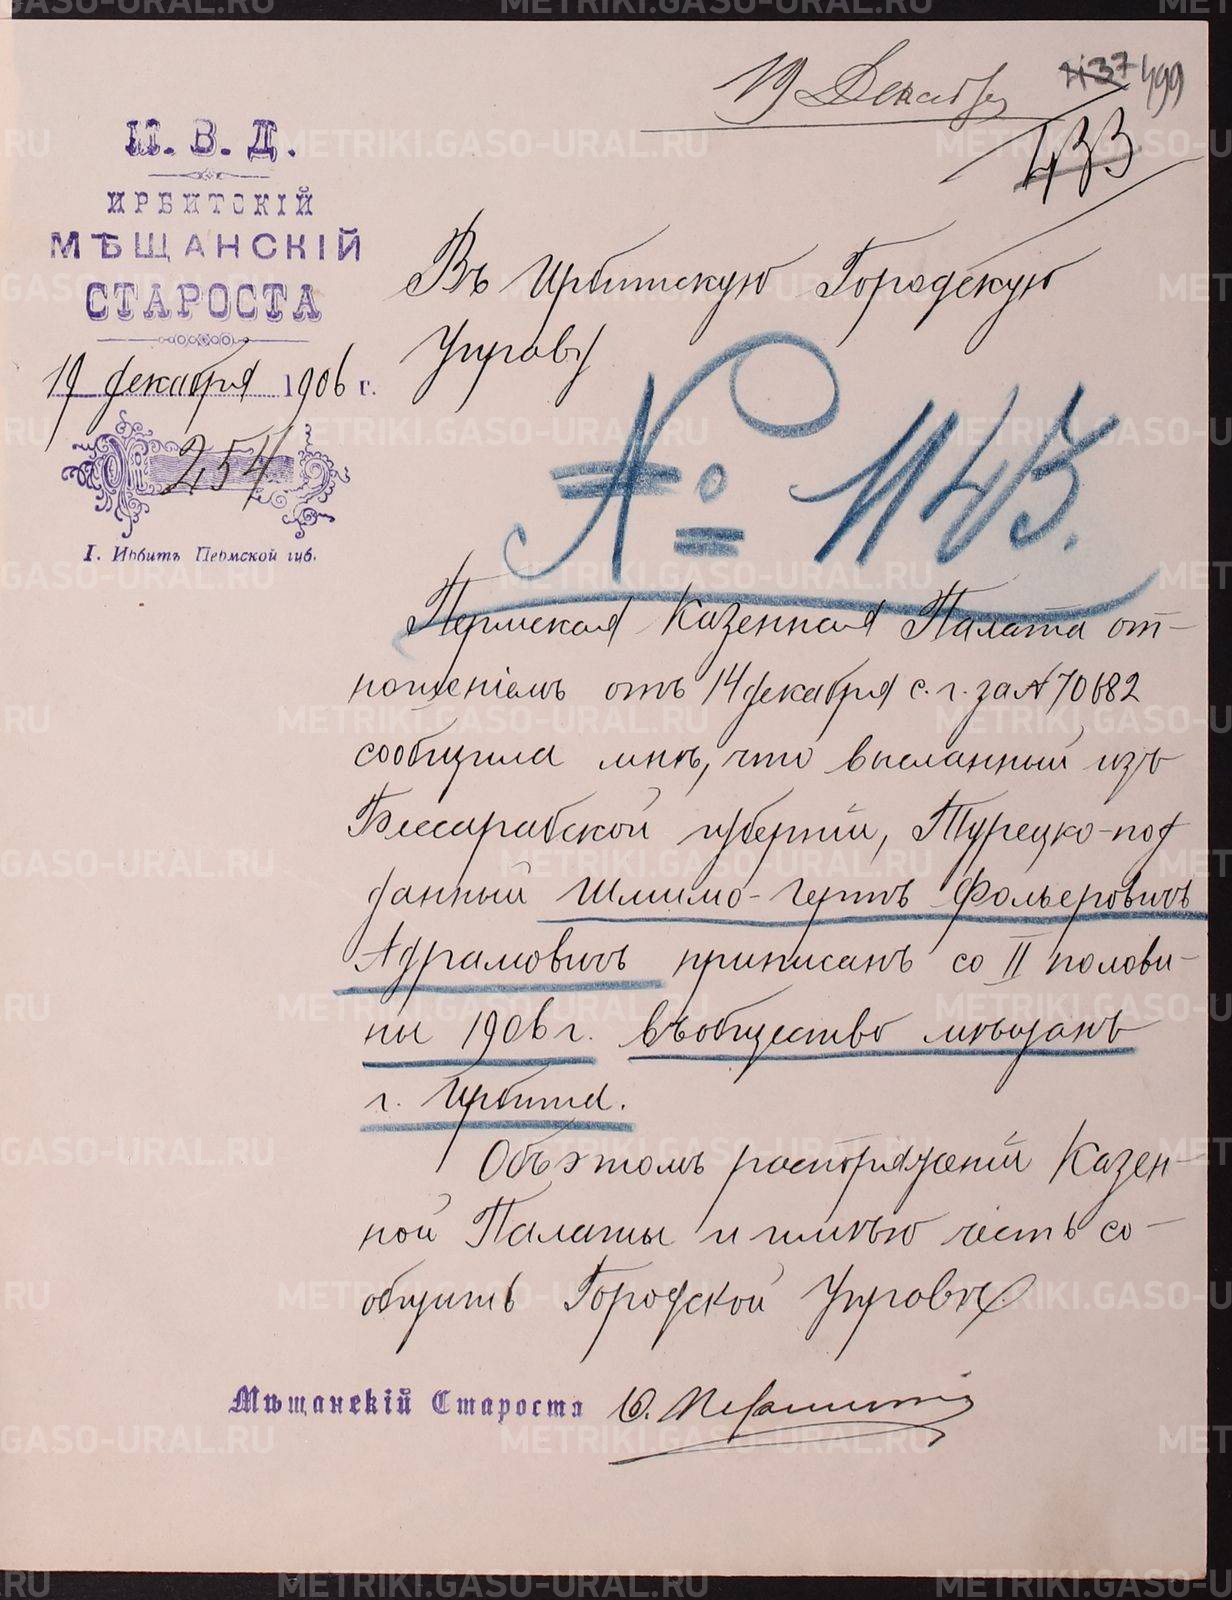 19 Декабря
437 499
433
М. В. Д.
ИРБИТСКІЙ
МѢЩАНСКІЙ
СТАРОСТА
19 декабря 1906 г.
№ 254
Г. Ирбитъ Пермской губ.
Въ Ирбитскую Городскую
Управу
№ 1143.
Пермская Казенная Палата от-
ношеніемъ отъ 14 декабря с. г. за № 70682
сообщила мнѣ, что высланный изъ
Бессарабской губерніи, Турецко-под
данный Шлимо-Герть Фольеровичъ
Адрамовичъ приписанъ со II полови-
ны 1906 г. въ общество мѣщанъ
г. Ирбита.
Объ этомъ распоряженіи Казен-
ной Палаты и имѣю честь со-
общить Городской Управѣ.
Мѣщанскій Староста
METRIKI.GASO-URAL.RU